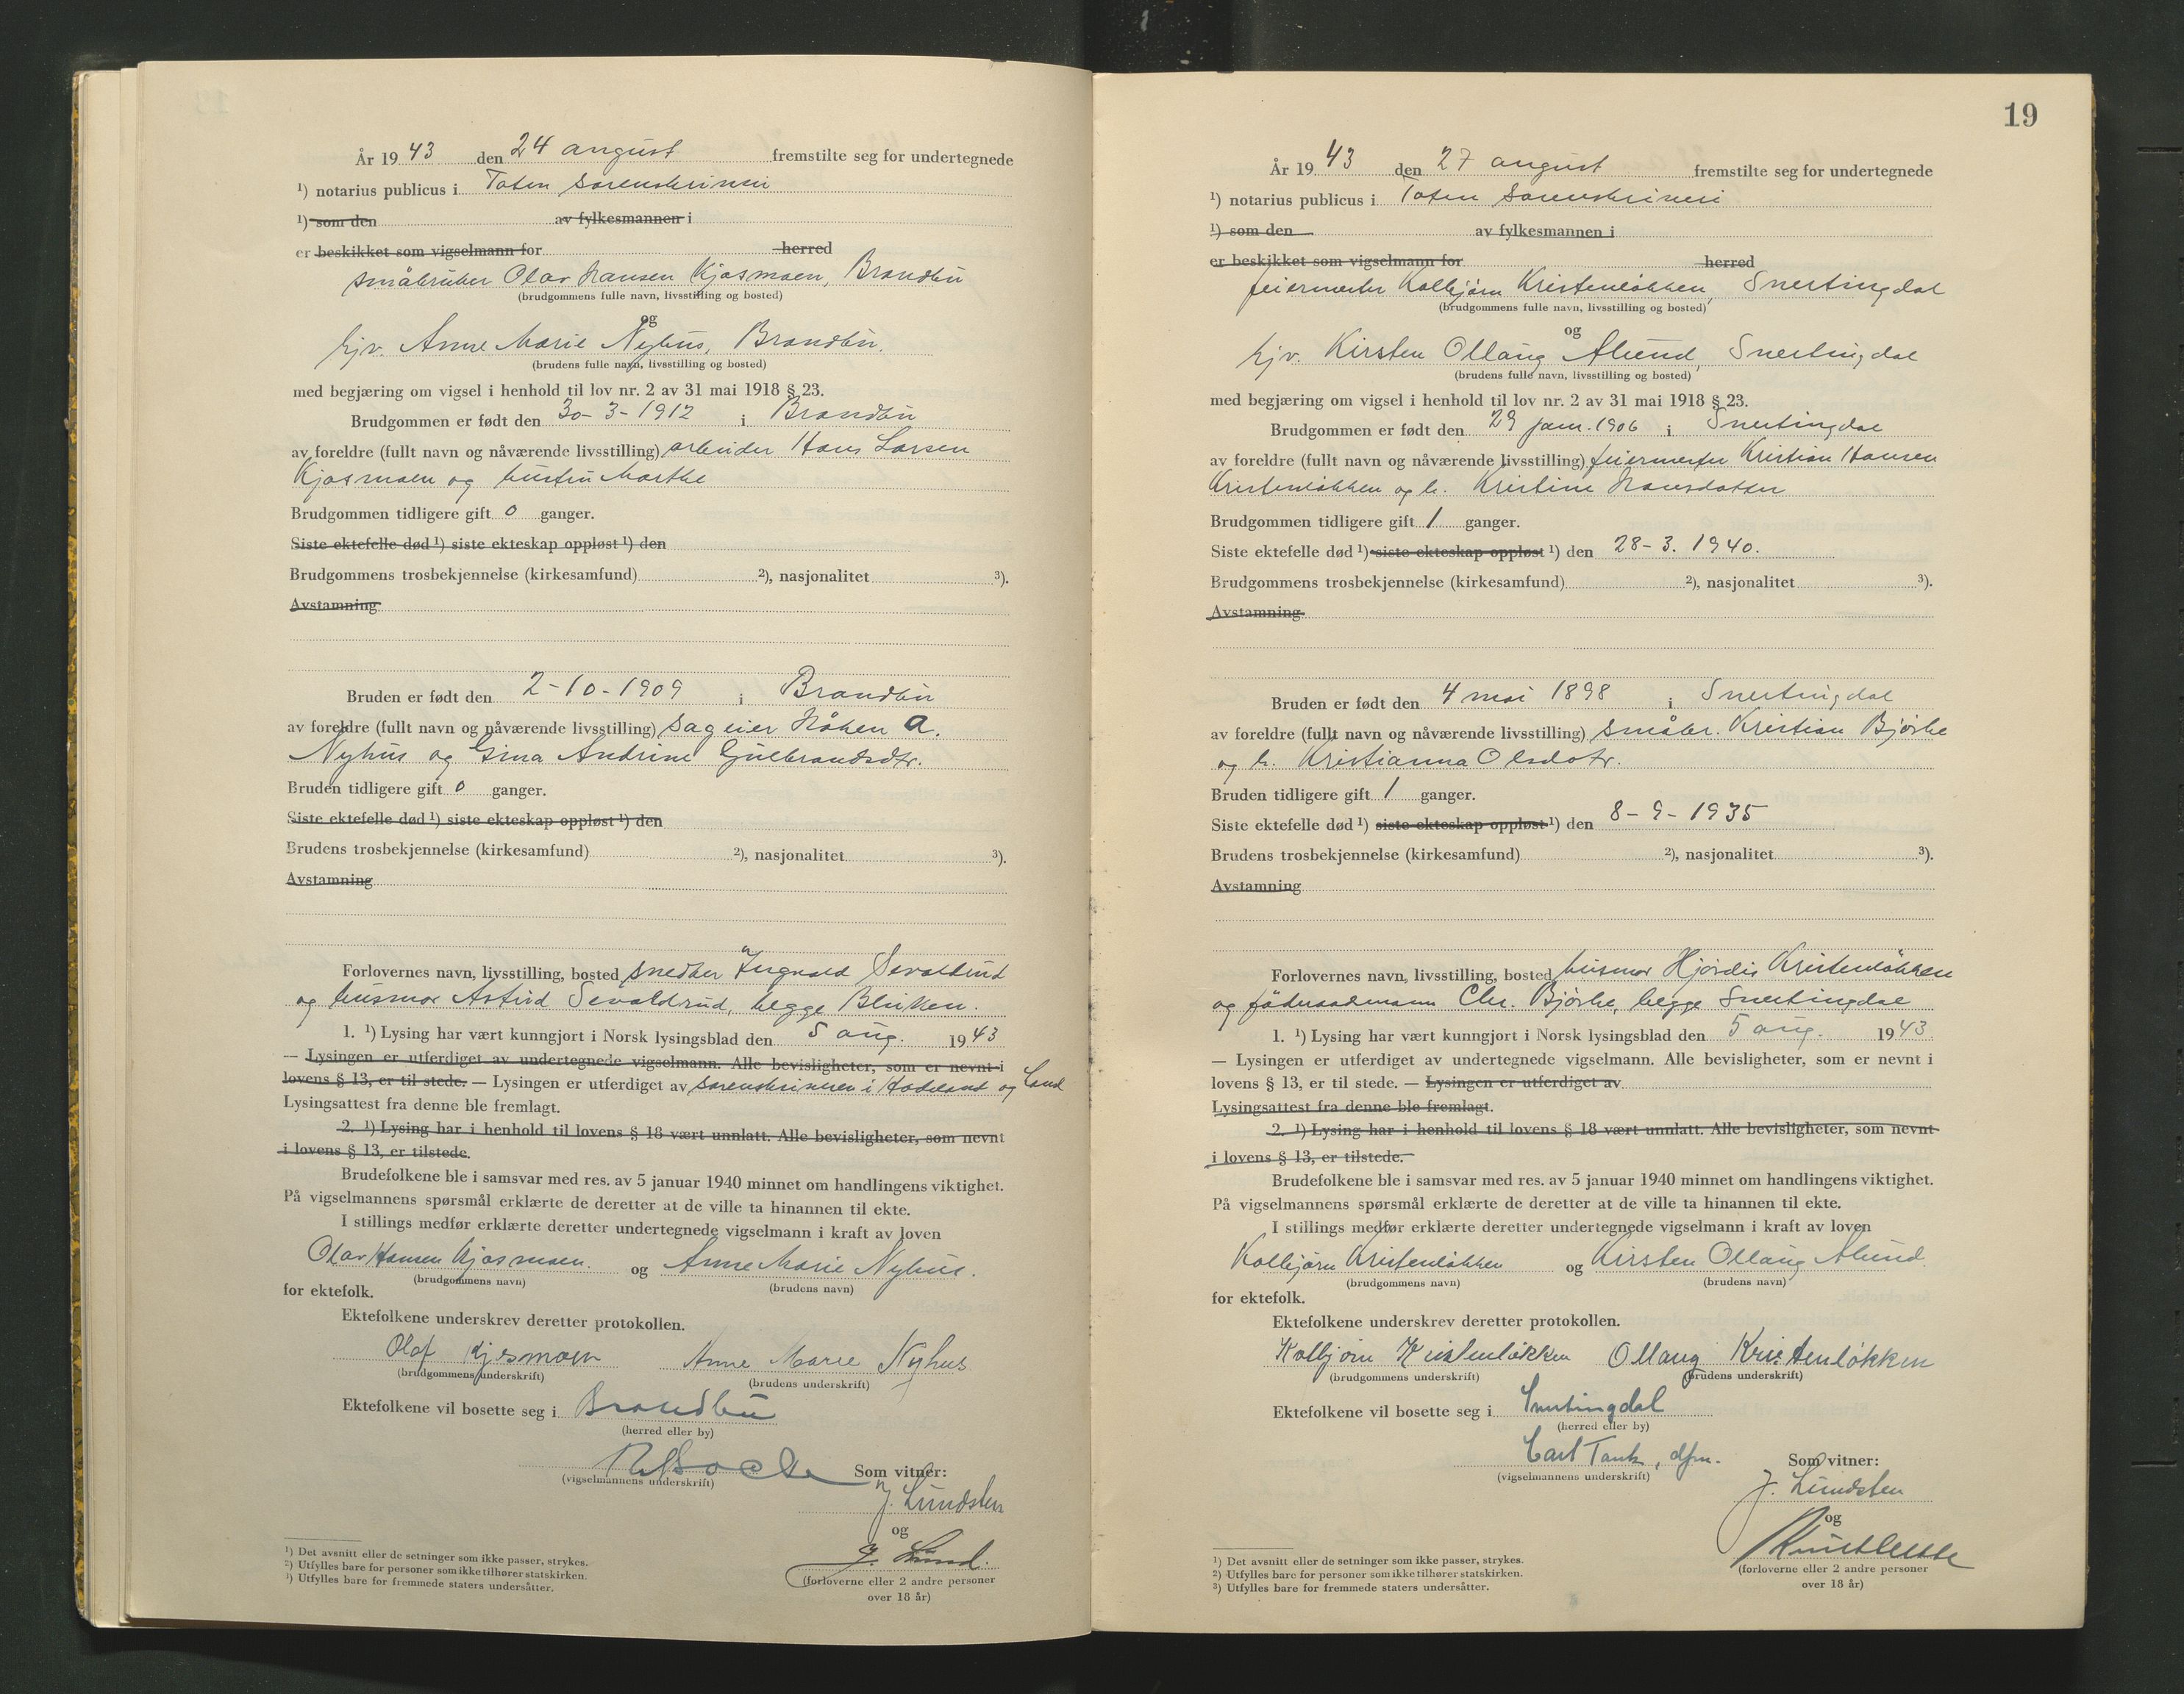 År 1943 den 24 august fremstilte seg for undertegnede
1) notarius publicus i Toten sorenskriveri
1) som den av fylkesmannen i
er beskikket som vigselmann for herred
småbruker Olav Hansen Kjosmoen, Brandbu
(brudgommens fulle navn, livsstilling og bosted)
og
hjv. Anne Marie Nyhus, Brandbu.
(brudens fulle navn, livsstilling og bosted)
med begjæring om vigsel i henhold til lov nr. 2 av 31 mai 1918 § 23.
Brudgommen er født den 30-3-1912 i Brandbu
av foreldre (fullt navn og nåværende livsstilling) arbeider Hans Larsen
Kjosmoen og hustru Marthe
Brudgommen tidligere gift 0 ganger.
Siste ektefelle død 1) siste ekteskap oppløst 1) den
Brudgommens trosbekjennelse (kirkesamfund) 2), nasjonalitet 3).
Avstamning
Bruden er født den 2-10-1909 i Brandbu
av foreldre (fullt navn og nåværende livsstilling) sageier Håken A.
Nyhus og Gina Andrine Gulbrandsdtr.
Bruden tidligere gift 0 ganger.
Siste ektefelle død 1) siste ekteskap oppløst 1) den
Brudens trosbekjennelse (kirkesamfund) 2), nasjonalitet 3).
Avstamning
Forlovernes navn, livsstilling, bosted snedker Ingvald Sevaldrud
og husmor Astrid Sevaldrud, begge Bleiken.
1. 1) Lysing har vært kunngjort i Norsk lysingsblad den 5 aug. 1943
— Lysingen er utferdiget av undertegnede vigselmann. Alle bevisligheter, som er nevnt i
lovens § 13, er til stede. — Lysingen er utferdiget av sorenskriveren i Hadeland og Land
Lysingsattest fra denne ble fremlagt.
2. 1) Lysing har i henhold til lovens § 18 vært unnlatt. Alle bevisligheter, som nevnt
i lovens § 13, er tilstede.
Brudefolkene ble i samsvar med res. av 5 januar 1940 minnet om handlingens viktighet.
På vigselmannens spørsmål erklærte de deretter at de ville ta hinannen til ekte.
I stillings medfør erklærte deretter undertegnede vigselmann i kraft av loven
Olav Hansen Kjosmoen. og Anne Marie Nyhus.
(brudgommens navn) (brudens navn)
for ektefolk.
Ektefolkene underskrev deretter protokollen.
Olaf Kjosmoen Anne Marie Nyhus
(brudgommens underskrift) (brudens underskrift)
Ektefolkene vil bosette seg i Brandbu
(herred eller by)
(vigselmannens underskrift) Som vitner:
J. Lundsten
og
J. Lund.
(forloverne eller 2 andre personer
over 18 år)
1) Det avsnitt eller de setninger som ikke passer, strykes.
2) Utfylles bare for personer som ikke tilhører statskirken.
3) Utfylles bare for fremmede staters undersåtter.
19
År 1943 den 27 august fremstilte seg for undertegnede
1) notarius publicus i Toten sorenskriveri
1) som den av fylkesmannen i
er beskikket som vigselmann for herred
feiermester Kolbjørn Kristenløkken, Snertingdal
(brudgommens fulle navn, livsstilling og bosted)
og
hjv. Kirsten Ollaug Alund, Snertingdal
(brudens fulle navn, livsstilling og bosted)
med begjæring om vigsel i henhold til lov nr. 2 av 31 mai 1918 § 23.
Brudgommen er født den 29 jan. 1906 i Snertingdal
av foreldre (fullt navn og nåværende livsstilling) feiermester Kristian Hansen
Kristenløkken og h. Kristine Hansdatter
Brudgommen tidligere gift 1 ganger.
Siste ektefelle død 1) siste ekteskap oppløst 1) den 28-3. 1940.
Brudgommens trosbekjennelse (kirkesamfund) 2), nasjonalitet 3).
Avstamning
Bruden er født den 4 mai 1898 i Snertingdal
av foreldre (fullt navn og nåværende livsstilling) småbr. Kristian Bjørke
og h. Kristianna Olsdatr.
Bruden tidligere gift 1 ganger.
Siste ektefelle død 1) siste ekteskap oppløst 1) den 8-9-1935
Brudens trosbekjennelse (kirkesamfund) 2), nasjonalitet 3).
Avstamning
Forlovernes navn, livsstilling, bosted husmor Hjørdis Kristenløkken
og føderaadsmann Chr. Bjørke, begge Snertingdal
1. 1) Lysing har vært kunngjort i Norsk lysingsblad den 5 aug. 1943
— Lysingen er utferdiget av undertegnede vigselmann. Alle bevisligheter, som er nevnt i
lovens § 13, er til stede. — Lysingen er utferdiget av
Lysingsattest fra denne ble fremlagt.
2. 1) Lysing har i henhold til lovens § 18 vært unnlatt. Alle bevisligheter, som nevnt
i lovens § 13, er tilstede.
Brudefolkene ble i samsvar med res. av 5 januar 1940 minnet om handlingens viktighet.
På vigselmannens spørsmål erklærte de deretter at de ville ta hinannen til ekte.
I stillings medfør erklærte deretter undertegnede vigselmann i kraft av loven
Kolbjørn Kristenløkken og Kirsten Ollaug Alund
(brudgommens navn) (brudens navn)
for ektefolk.
Ektefolkene underskrev deretter protokollen.
Kolbjørn Kristenløkken Ollaug Kristenløkken
(brudgommens underskrift) (brudens underskrift)
Ektefolkene vil bosette seg i Snertingdal
(herred eller by)
Carl Tank, dfm.
(vigselmannens underskrift) Som vitner:
J. Lundsten
og
(forloverne eller 2 andre personer
over 18 år)
1) Det avsnitt eller de setninger som ikke passer, strykes.
2) Utfylles bare for personer som ikke tilhører statskirken.
3) Utfylles bare for fremmede staters undersåtter.